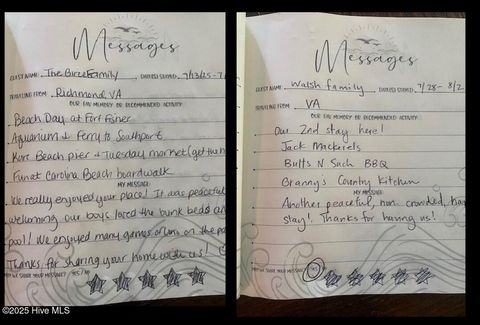 Messages
GUEST NAME The Family DATE(S) STAYED 7/13/25-7
TRAVELING FROM Richmond, VA
OUR FAV MEMORY OR RECOMMENDED ACTIVITY
Beach Day at Fort Fisher
Aquarium & Ferry to Southport
Kure Beach pier & Tuesday market (get the h
Fun at Carolina Beach boardwalk
MY MESSAGE
We really enjoyed your place! It was peaceful
welcoming our boys loved the bunk beds and
pool! We enjoyed many games of uno on the po
Thanks for sharing your home with us!
MAY WE SHARE YOUR MESSAGE? YES / NO
Messages
GUEST NAME Walsh family DATE(S) STAYED 7/28- 8/2
TRAVELING FROM VA
OUR FAV MEMORY OR RECOMMENDED ACTIVITY
Our 2nd stay here!
Jack Mackerels
Butts N Such BBQ
Granny's Country Kitchen
MY MESSAGE
Another peaceful, non crowded,
stay! Thanks for having us!
MAY WE SHARE YOUR MESSAGE? YES
©2025 Hive MLS